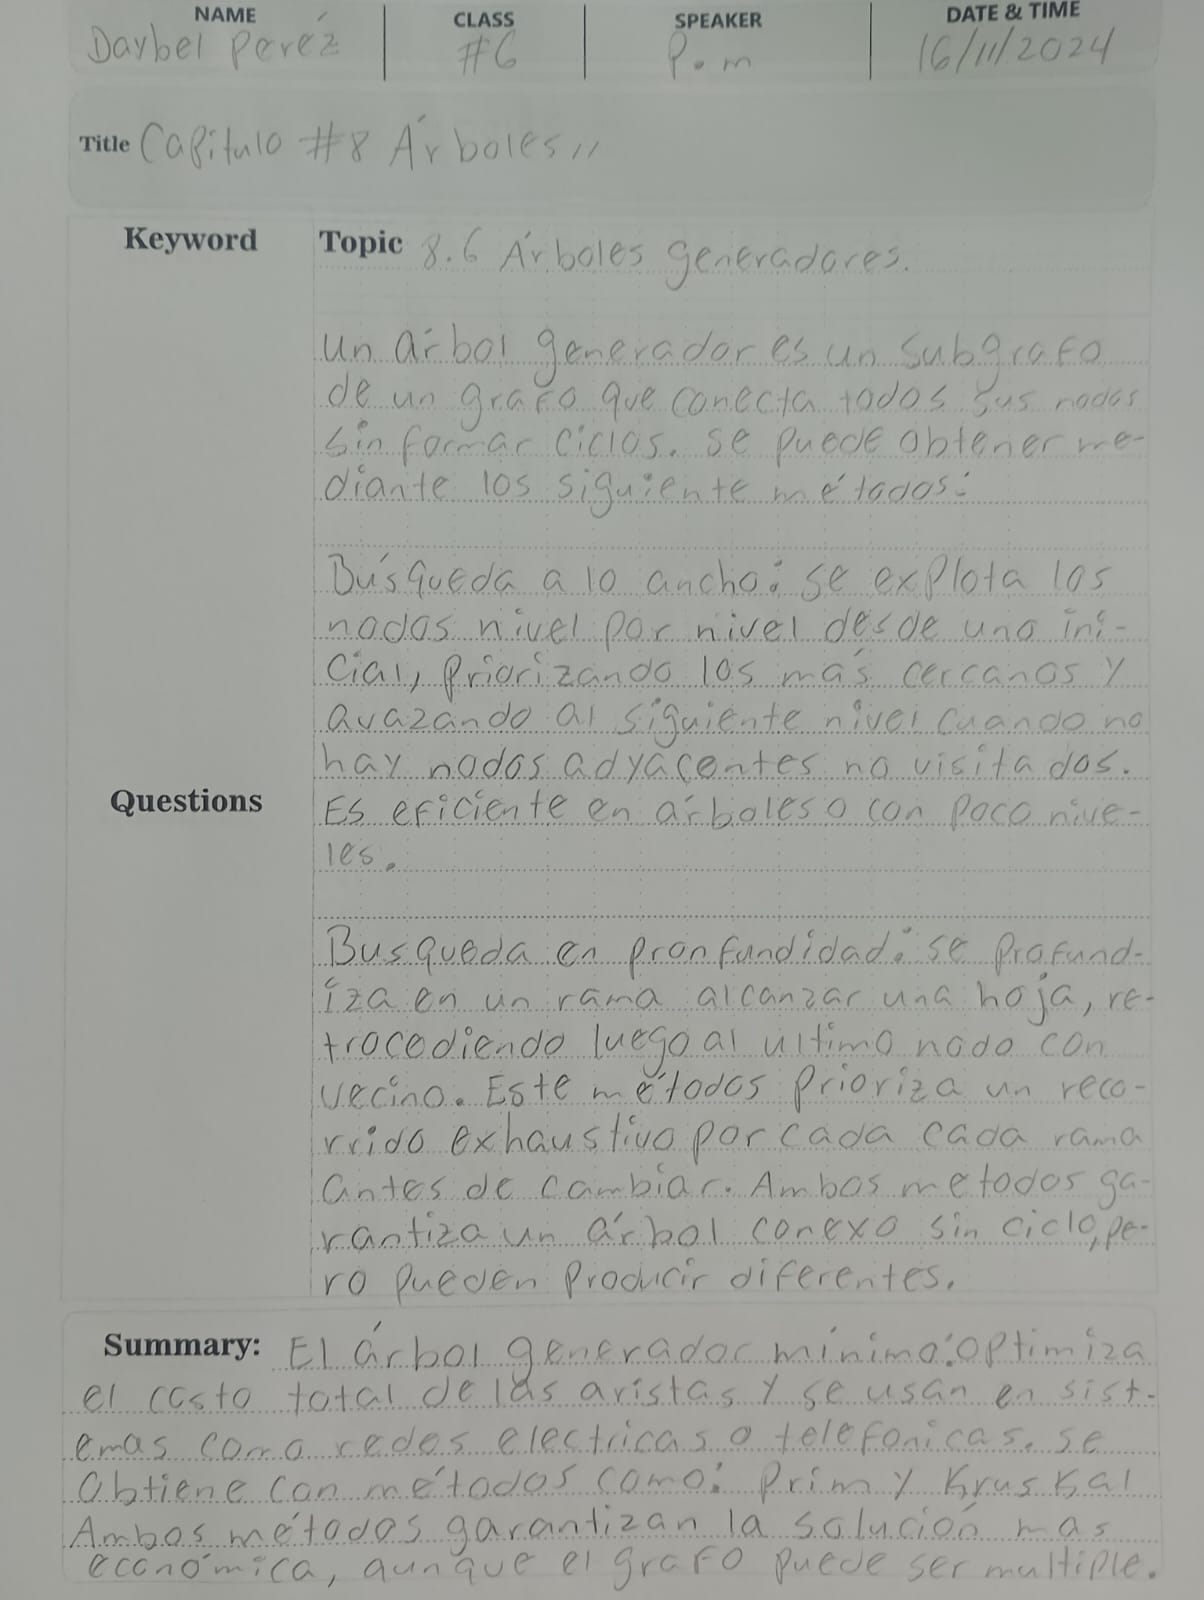 NAME CLASS SPEAKER DATE & TIME
Daybel Peréz #6 P.m 16/11/2024
Title Capítulo #8 Árboles,,
Keyword Topic 8.6 Árboles generadores.
un árbol generador es un subgrafo
de un grafo que conecta todos sus nodos
sin formar ciclos. se puede obtener me-
diante los siguiente métodos:
Búsqueda a lo ancho: se explota los
nodos nivel por nivel desde uno ini-
cial, priorizando los más cercanos y
avazando al siguiente nivel cuando no
hay nodos adyacentes no visitados.
Questions Es eficiente en árboles o con poco nive-
les.
Busqueda en pronfundidad: se profund-
iza en un rama alcanzar una hoja, re-
trocediendo luego al ultimo nodo con
vecino. Este métodos prioriza un reco-
rrido exhaustivo por cada cada rama
antes de cambiar. Ambos metodos ga-
rantiza un árbol conexo sin ciclo, pe-
ro pueden producir diferentes.
Summary: El árbol generador mínimo: optimiza
el costo total de las aristas y se usan en sist-
emas como redes electricas o telefonicas. se
Obtiene con métodos como: Prim y Kruskal
Ambos métodos garantizan la solución mas
económica, aunque el grafo puede ser multiple.